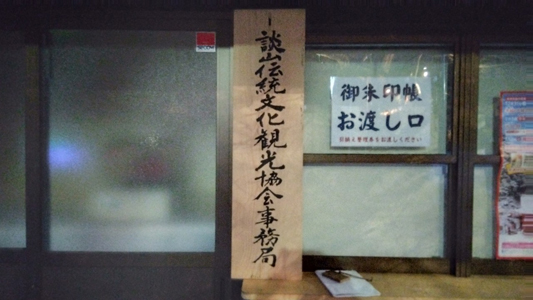 談山伝統文化観光協会事務局
御朱印帳
お渡し口